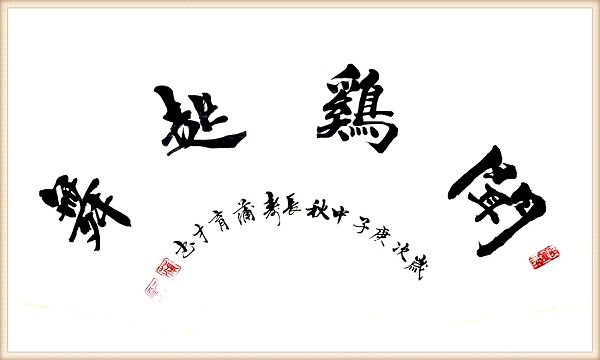 聞鷄起舞
歲次庚子中秋長壽蒲育才书